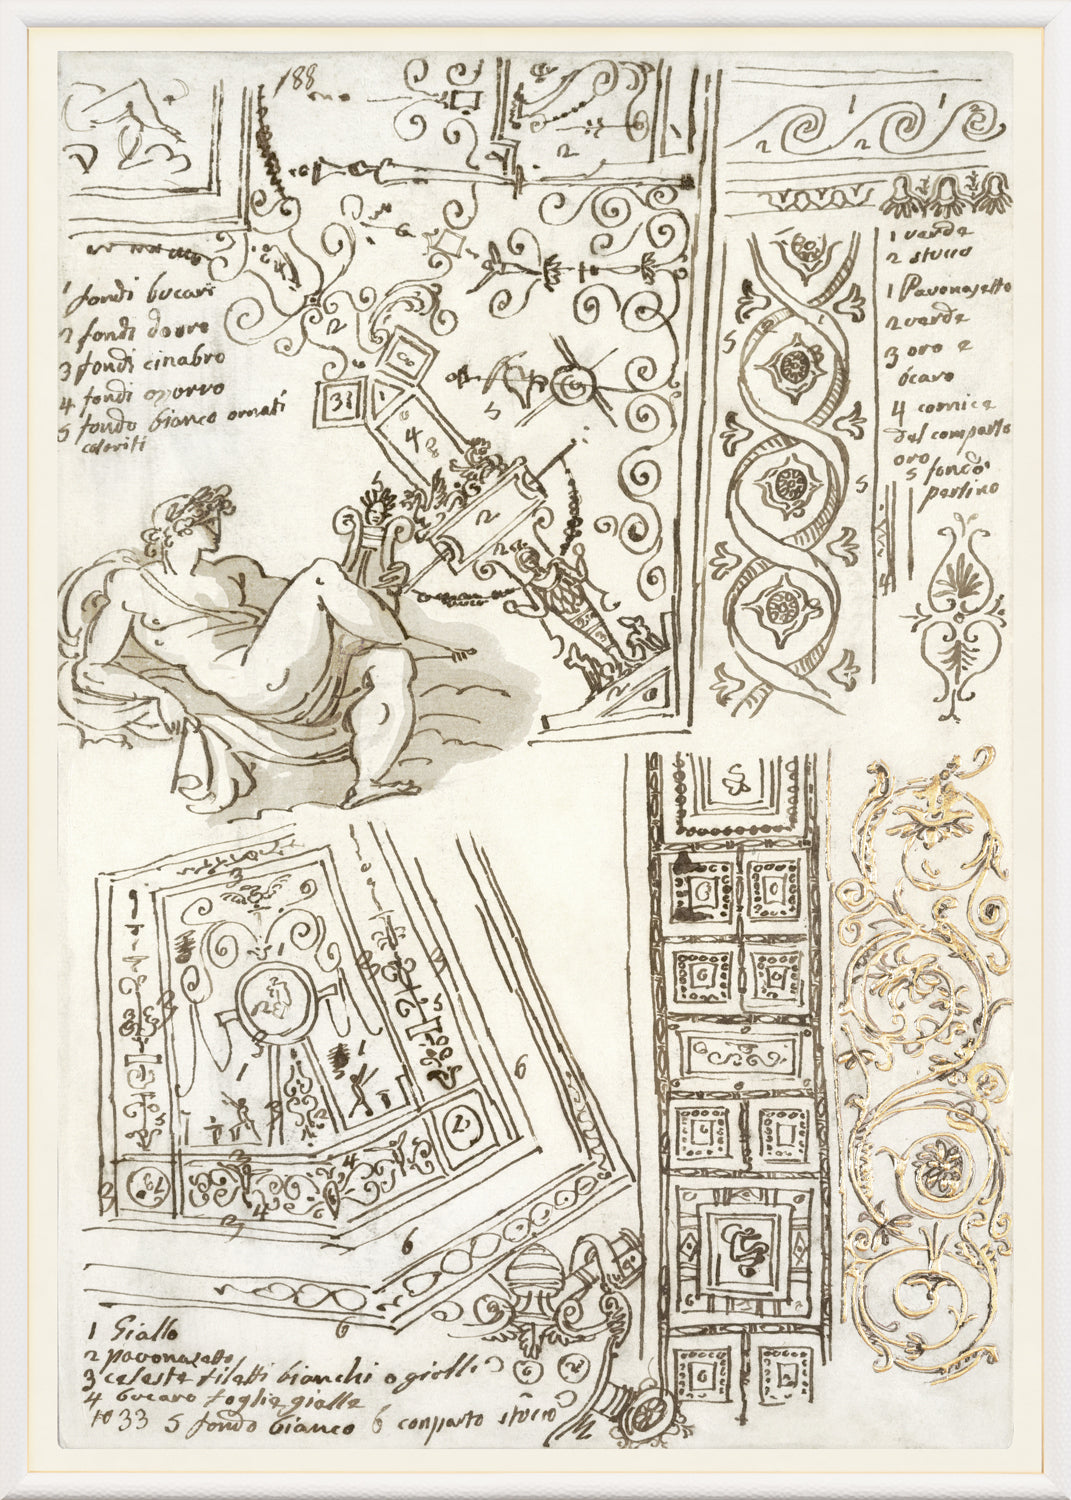 188
1 fondi bucari
2 fondi d'oro
3 fondi cinabro
4 fondi
5 fondo bianco ornati
coloriti
1 verde
2 stucco
1 Pavonazetto
2 verde
3 oro e
ocaro
4 cornice
del comparto
oro
5 fondo
porfino
1 Giallo
2 pavonazetto
3 celeste filetti bianchi o gialli
4 bucaro foglie gialle
5 fondo bianco 6 conparto stucco